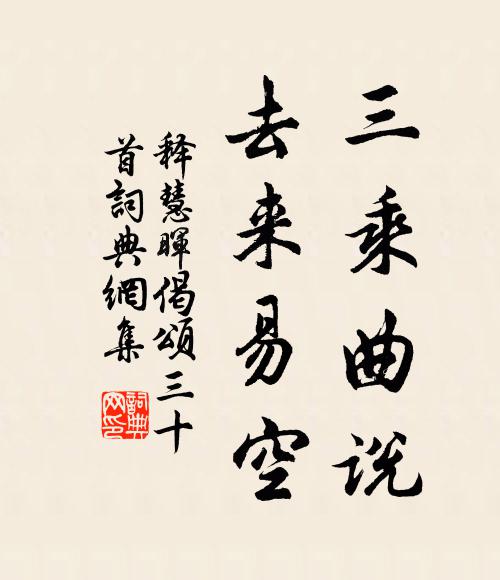 三乘曲说
去来易空
释慧晖偈颂三十
首詞典網集
詞典网印